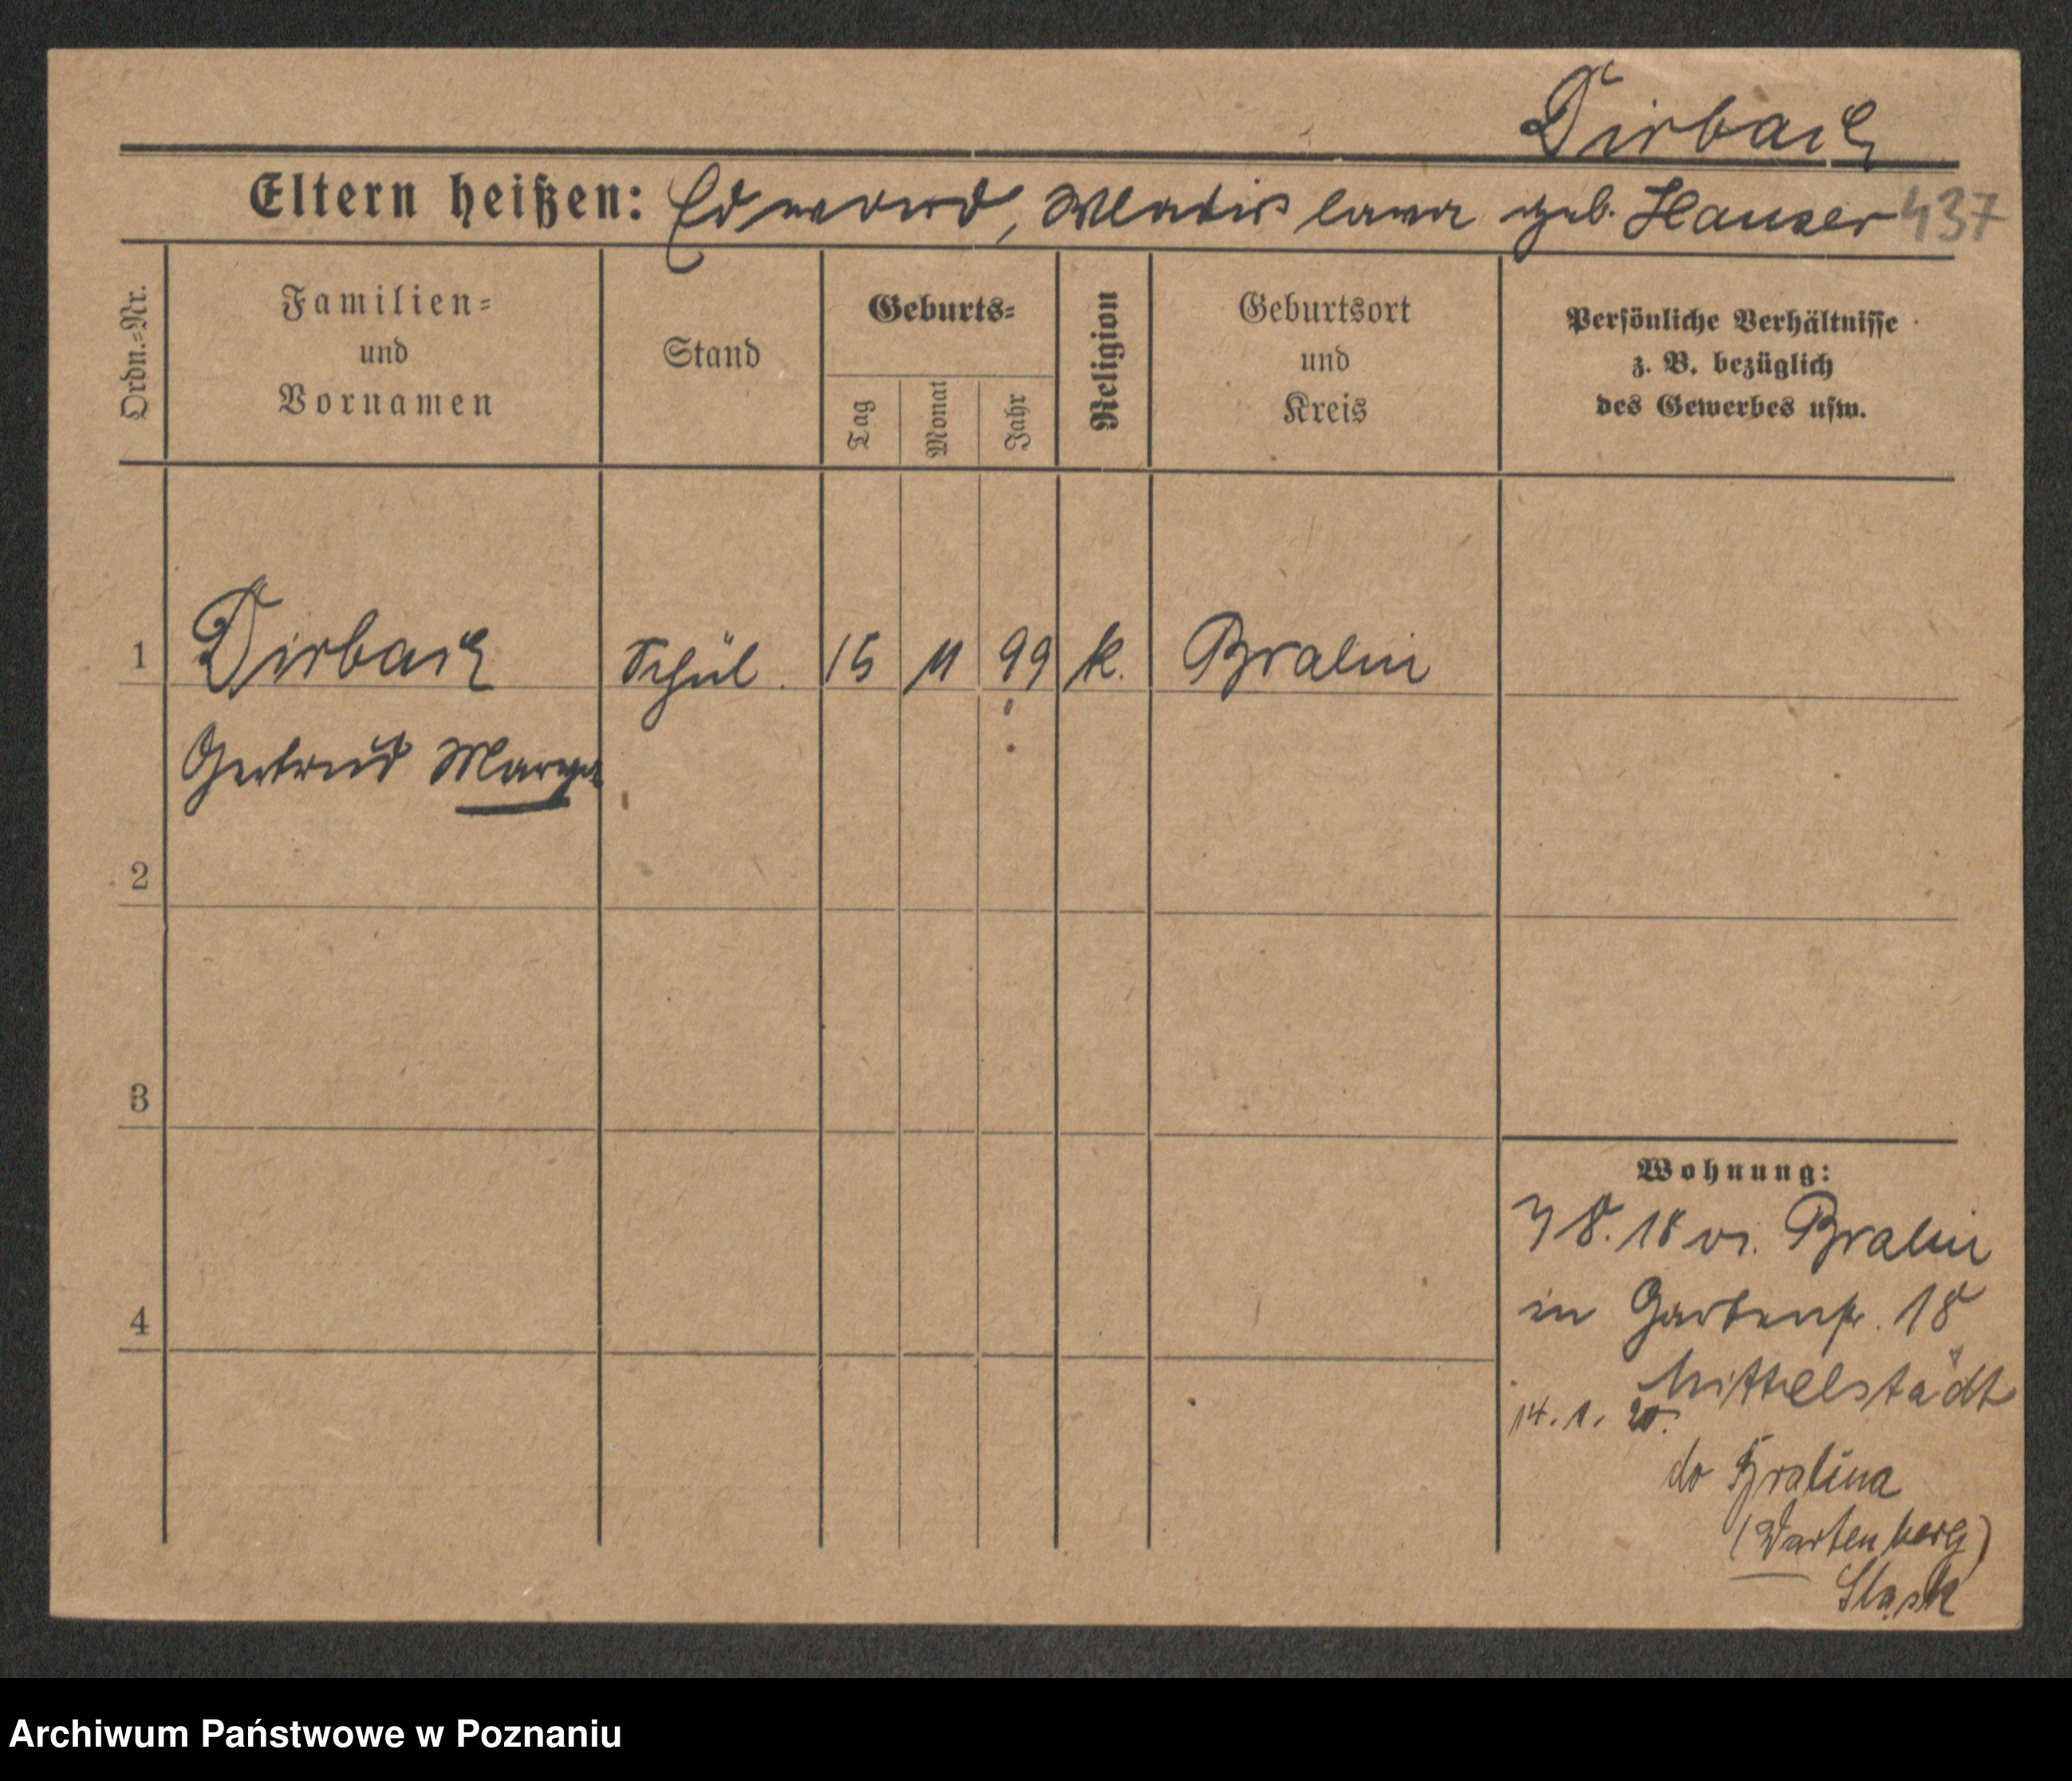 Dirbach
Eltern heißen: Edmund, Wladislawa geb. Hauser 437
Ordn.=Nr.
Familien=
und
Vornamen
Stand
Geburts=
Tag
Monat
Jahr
Religion
Geburtsort
und
Kreis
Persönliche Verhältnisse
z. B. bezüglich
des Gewerbes usw.
1 Dirbach Schül. 15 11 99 k. Bralin
Gertrud
2
3
4
Wohnung:
8. 18 Bralin
in Gartenstr. 18
Mittelstädt
14. 1. 20.
do Bralina
(Wartenberg)
Śląsk
Archiwum Państwowe w Poznaniu